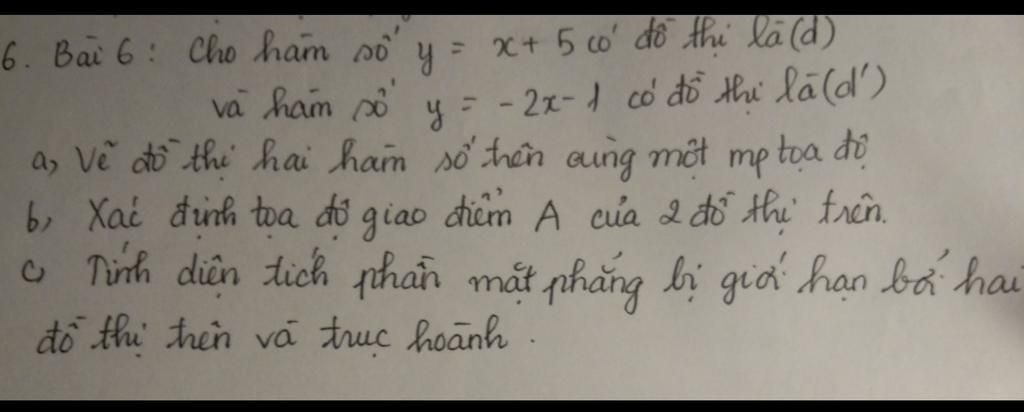 6. Bài 6: Cho hàm số y = x + 5 có đồ thị là (d)
và hàm số y = -2x-1 có đồ thị là (d')
a, Vẽ đồ thị hai hàm số trên cùng một mp tọa độ
b, Xác định tọa độ giao điểm A của 2 đồ thị trên.
c) Tính diện tích phần mặt phẳng bị giới hạn bởi hai
đồ thị trên và trục hoành.